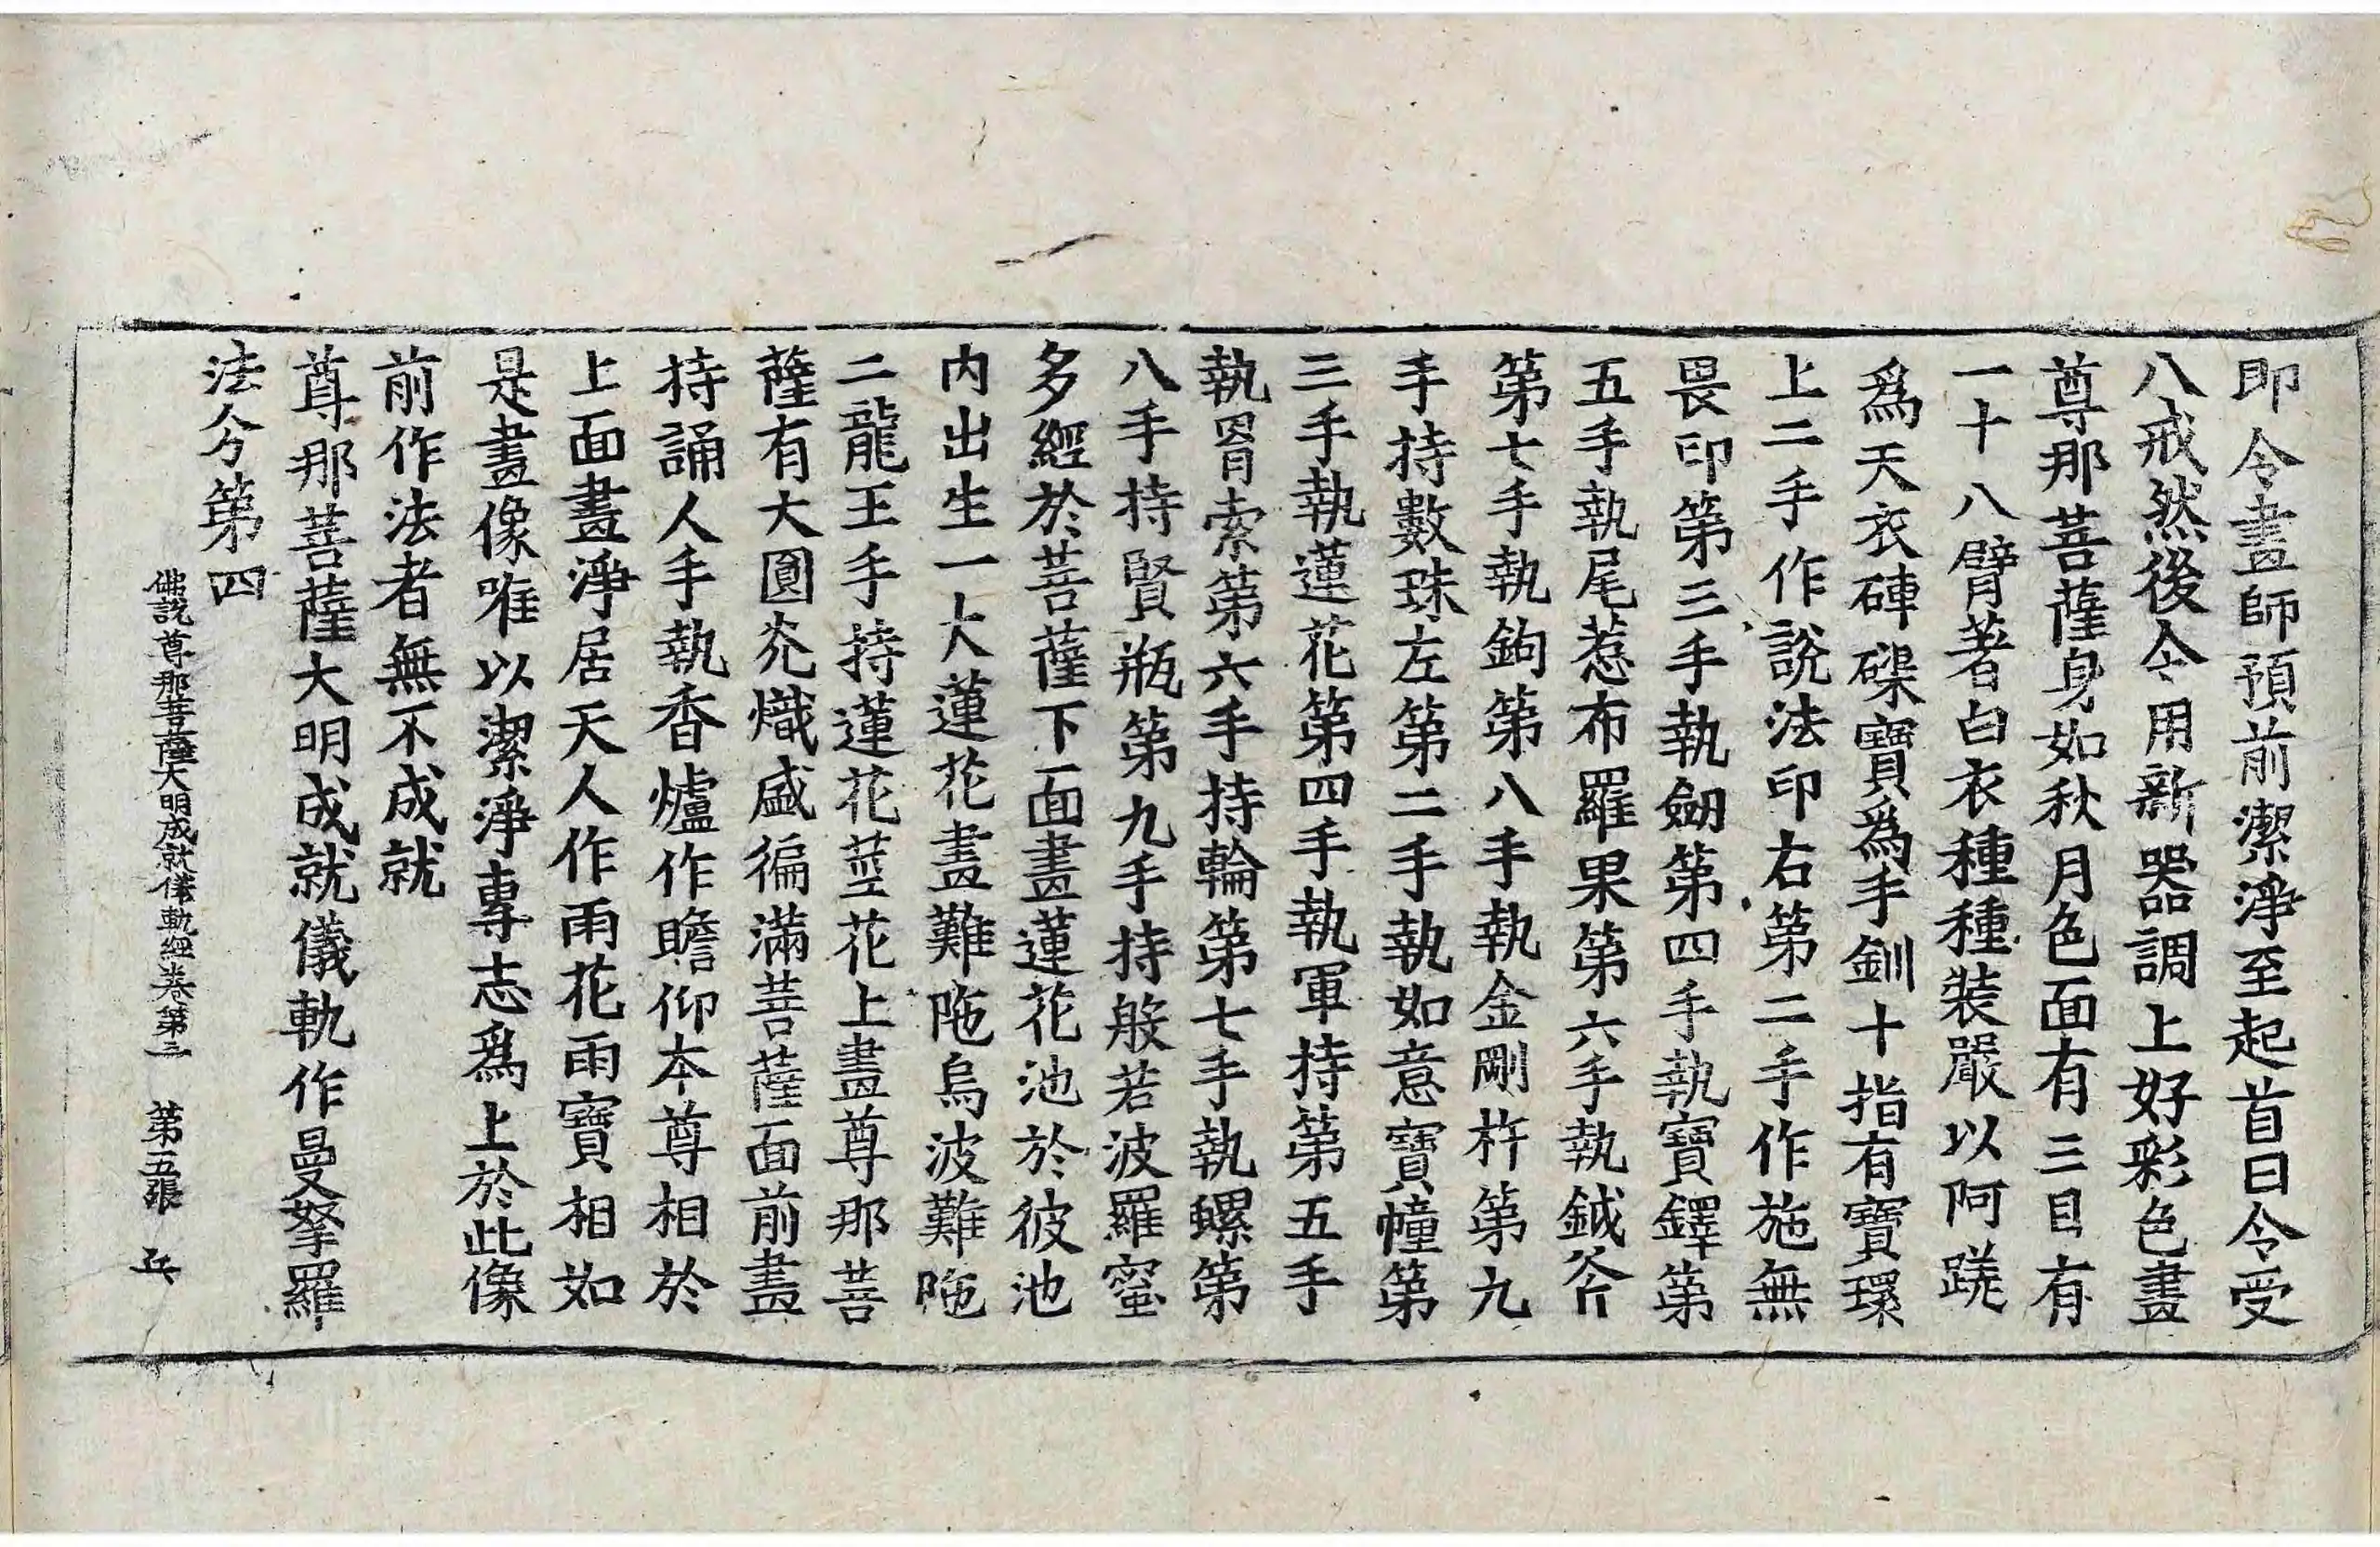 即令畫師預前潔淨至起首日令受
八戒然後令用新器調上好彩色畫
尊那菩薩身如秋月色面有三目有
一十八臂著白衣種種裝嚴以阿蹉
爲天衣硨磲寶爲手釧十指有寶環
上二手作說法印右第二手作施無
畏印第三手執劒第四手執寶鐸第
五手執尾惹布羅果第六手執鉞斧
第七手執鉤第八手執金剛杵第九
手持數珠左第二手執如意寶幢第
三手執蓮花第四手執軍持第五手
執罥索第六手持輪第七手執螺第
八手持賢瓶第九手持般若波羅蜜
多經於菩薩下面畫蓮花池於彼池
内出生一大蓮花畫難陁烏波難陁
二龍王手持蓮花莖花上畫尊那菩
薩有大圓光熾盛徧滿菩薩面前畫
持誦人手執香爐作瞻仰本尊相於
上面畫淨居天人作雨花雨寶相如
是畫像唯以潔淨專志爲上於此像
前作法者無不成就
尊那菩薩大明成就儀軌作曼拏羅
法分第四
佛説尊那菩薩大明成就儀軌經卷第二 第五張 兵